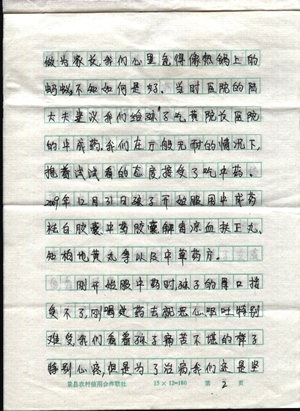 做为家长,我们心里急得像热锅上的
蚂蚁,不知如何是好。当时医院的
大夫建议我们给孩子吃黄院长医院
的中草药。我们在万般无耐的情况下,
抱着试试看的态度接受了吃中药。
2009年12月31日孩子开始服用中草药
祛白胶囊中药胶囊解毒凉血扶正丸、
知柏地黄丸等以及中草药方。
刚开始服中药时,孩子的胃口接
受不了,刚喝完药去就恶心呕吐特别
难受我们看着孩子痛苦不堪的样子
特别心疼,但是为了治病,我们还是坚
景县农村信用合作联社 15×12=180 第 2 页